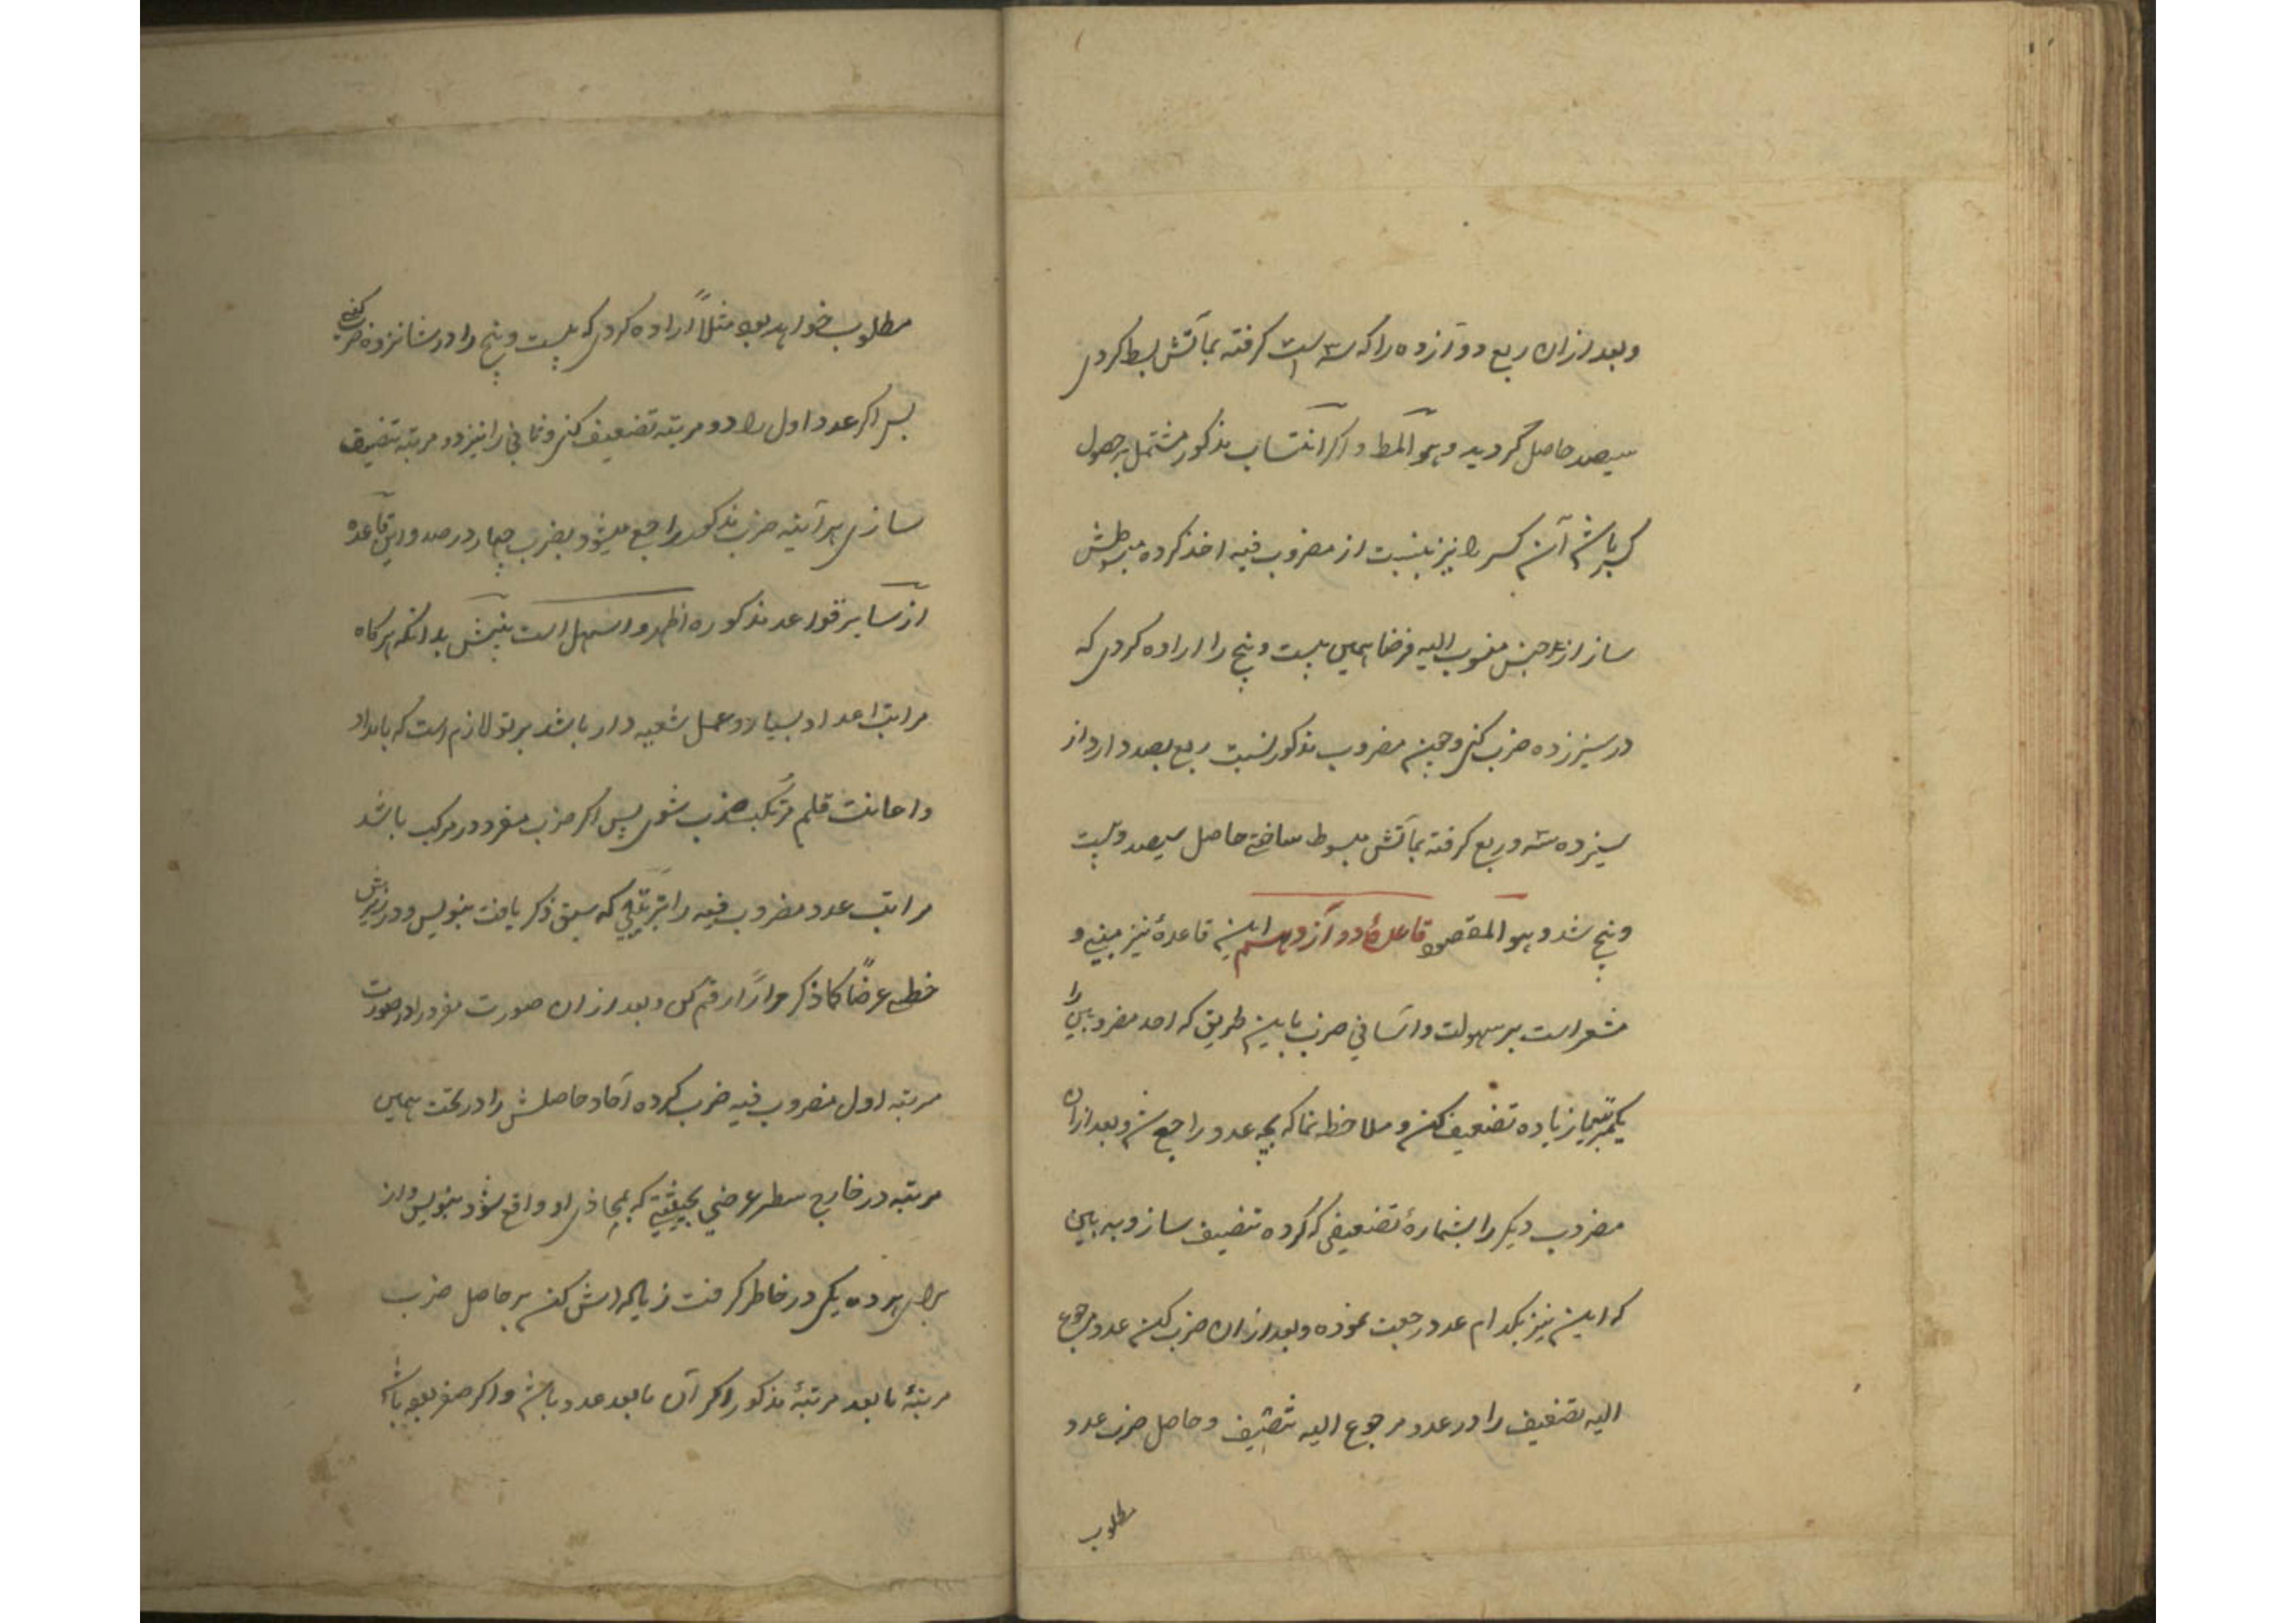 وبعد ازان ربع دوآزده را که سه است کرفته بمآتش بسط کردی
سیصد حاصل گردید وهو المط واکر انتساب مذکور مشتمل بر حصول
کسر باشد آن کسر را نیز بنسبت از مضروب فیه اخذ کرده مبسوطش
ساز از جنس منسوب الیه فرضا همین بیست و پنج را اراده کردی که
در سیزده ضرب کنی وچون مضروب مذکور نسبت ربع بصد دارد از
سیزده سه و ربع کرفته بمآتش مبسوط ساختی حاصل سیصد وبیست
و پنج شد وهو المقصود قاعدهٔ دوآزدهم این قاعدهٔ نیز مبنی و
مشعر است بر سهولت وآسانی ضرب باین طریق که احد مضروبین را
یکمرتبه یا زیاده تضعیف کن و ملاحظه نما که بچه عدد راجع شد وبعد ازان
مضروب دیکر را بشمارهٔ تضعیفی که کرده تنصیف ساز وبه بین
که این نیز بکدام عدد رجعت نموده وبعد ازان ضرب کن عدد مرجوع
الیه تضعیف را در عدد مرجوع الیه تنصیف وحاصل ضرب عدد
مطلوب
مطلوب خواهد بود مثلاً اراده کردی که بیست و پنج را در شانزده ضرب کنی
پس اکر عدد اول را دو مرتبه تضعیف کنی وثانی را نیز دو مرتبه تنصیف
سازی هر آینه ضرب مذکور راجع میشود بضرب چهار در صد واین قاعده
از سایر قواعد مذکوره اظهر و اسهل است بدانکه هرکاه
مراتب اعداد بسیار وعمل شعبه دار باشد بر تو لازم است که بامداد
واعانت قلم مرتکب ضرب شوی پس اکر ضرب مفرد در مرکب باشد
مراتب عدد مضروب فیه را بترتیبی که سبق ذکر یافت بنویس ودر زیرش
خطی عرضاً کما ذکر مراراً رقم کن وبعد ازان صورت مفرد را در صورت
مرتبه اول مضروب فیه ضرب کرده آحاد حاصلش را در تحت همین
مرتبه در خارج سطر عرضی بحیثیتی که بمحاذی او واقع شود بنویس واز
برای هر ده یکی در خاطر کرفت زیاده اش کن بر حاصل ضرب
مرتبهٔ مابعد مرتبهٔ مذکور اکر آن مابعد عدد باشد واکر صفر بوده باشد